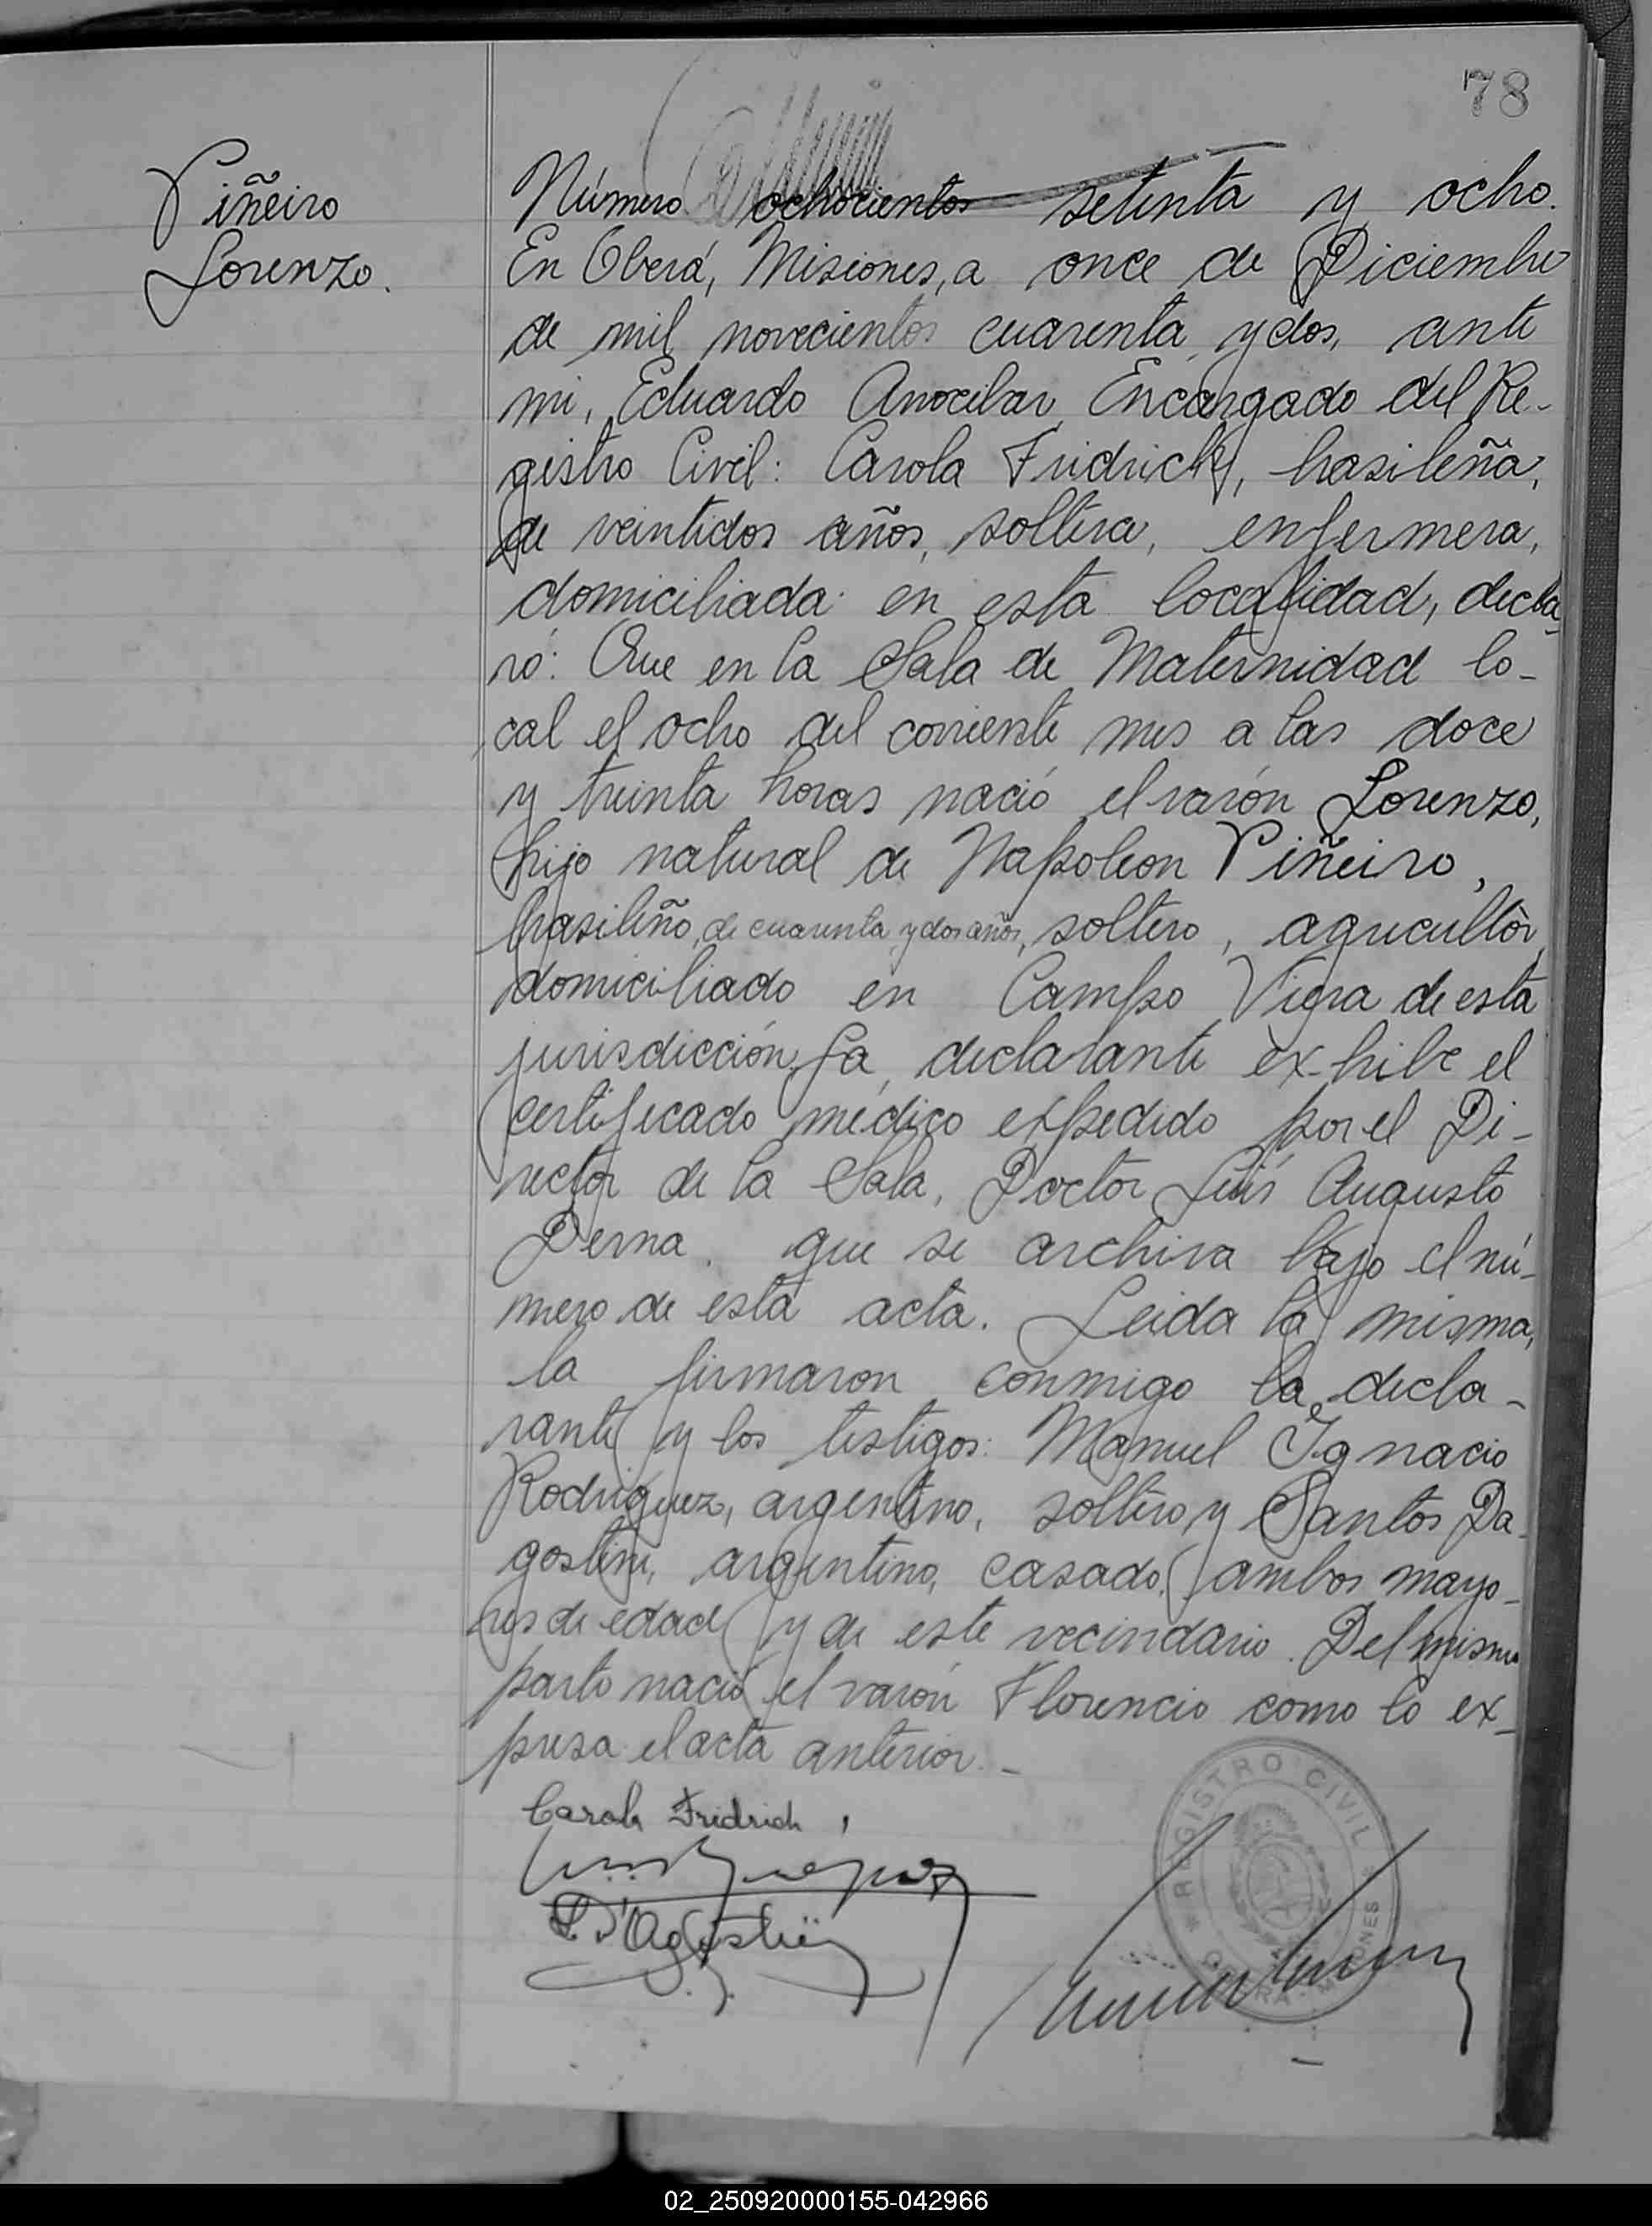 78
Piñeiro
Lorenzo.
Número ochocientos setenta y ocho.
En Oberá, Misiones, a once de Diciembre
de mil novecientos cuarenta y dos, ante
mi, Eduardo Anocibar, Encargado del Re-
gistro Civil: Carola Fridrich, brasileña,
de veintidos años, soltera, enfermera,
domiciliada en esta localidad, decla-
ró: Que en la Sala de Maternidad lo-
cal el ocho del corriente mes a las doce
y treinta horas nació el varón Lorenzo,
hijo natural de Napoleon Piñeiro,
brasileño, de cuarenta y dos años, soltero, agricultor,
domiciliado en Campo Viera de esta
jurisdicción. La declarante exhibe el
certificado médico expedido por el Di-
rector de la Sala, Doctor Luis Augusto
Derna, que se archiva bajo el nú-
mero de esta acta. Leida la misma,
la firmaron conmigo la decla-
rante y los testigos: Manuel Ignacio
Rodriguez, argentino, soltero y Santos Da-
gostini, argentino, casado, ambos mayo-
res de edad y de este vecindario. Del mismo
parto nació el varón Florencio como lo ex-
presa el acta anterior.-
Carola Fridrich
S. D'Agostini
REGISTRO CIVIL
OBERA - MISIONES
02_250920000155-042966